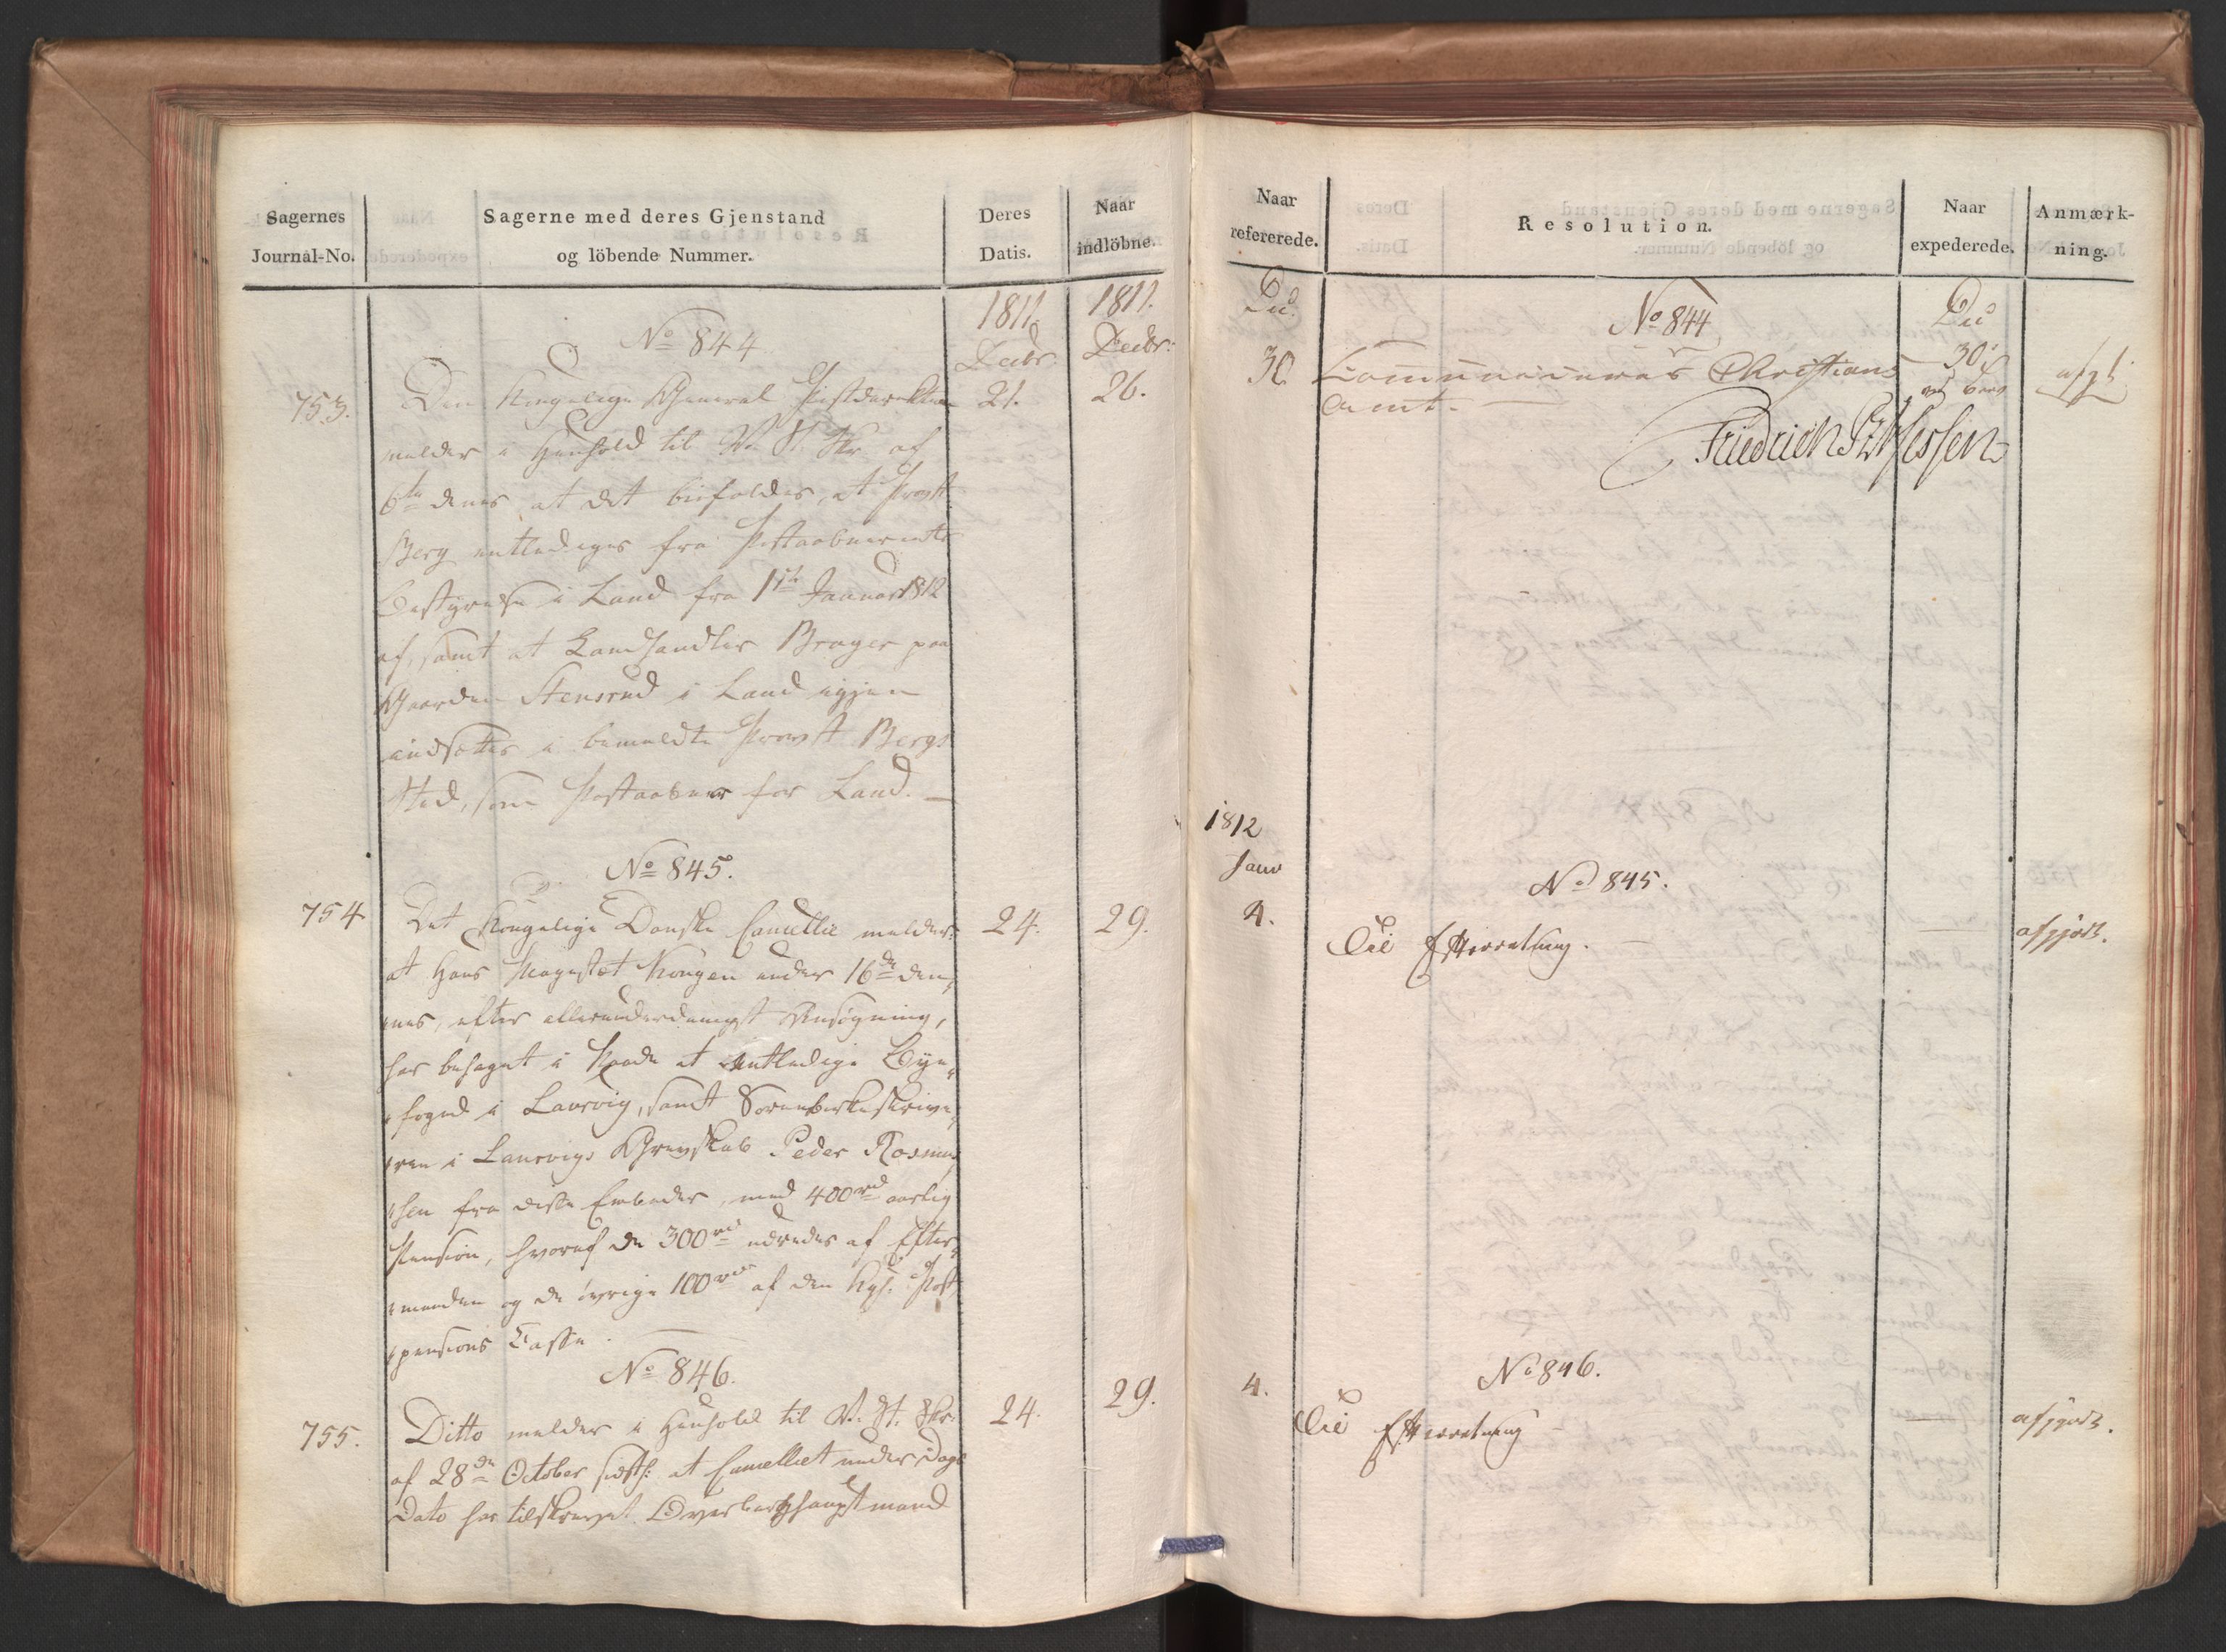 Sagernes
Journal-No.
Sagerne med deres Gjenstand
og löbende Nummer.
Deres
Datis.
Naar
indlöbne.
1811.
Decbr:
1811.
Decbr:
No 844
753.
Den Kongelige General Postdirektion
21.
26.
melder i Henhold til V. St. Skr. af
6te denes at det bifaldes, at Provst
Berg entlediges fra Postaabneriets
Bestyrelse i Land fra 1ste Januar 1812
af, samt at Landhandler Brager paa
Gaarden Stensrud i Land igjen
indsættes i bemeldte Provst Bergs
Sted, som Postaabner for Land. —
No 845.
754
Det Kongelige Danske Cancellie melder:
24.
29.
at Hans Majestæt Kongen under 16de den,
nes, efter allerunderdanigst Ansögning,
har behaget i Naade at entledige Bye,
foged i Laurvig, samt Sorenbirkeskrive,
ren i Laurvigs Grevskab Peder Rasmus
sen fra disse Embeder, med 400rd aarlig
Pension, hvoraf de 300rd udredes af Efter,
manden og de övrige 100rd af den Kgl. Post
pensions Casse.
No 846.
755.
Ditto melder i Henhold til V. St. Skr.
24.
29.
af 28de October sidstl: at Cancelliet under Dags
Dato har tilskrevet Overberghauptmand
Naar
refererede.
Resolution.
Naar
expederede.
Anmærk-
ning.
No 844
30.
Communiceres Christians
30
afgt
Amt. —
Friedrich
1812
Janv
No 845.
4.
Til Efterretning. —
afgjort.
No 846.
4.
Til Efterretning
afgjort.